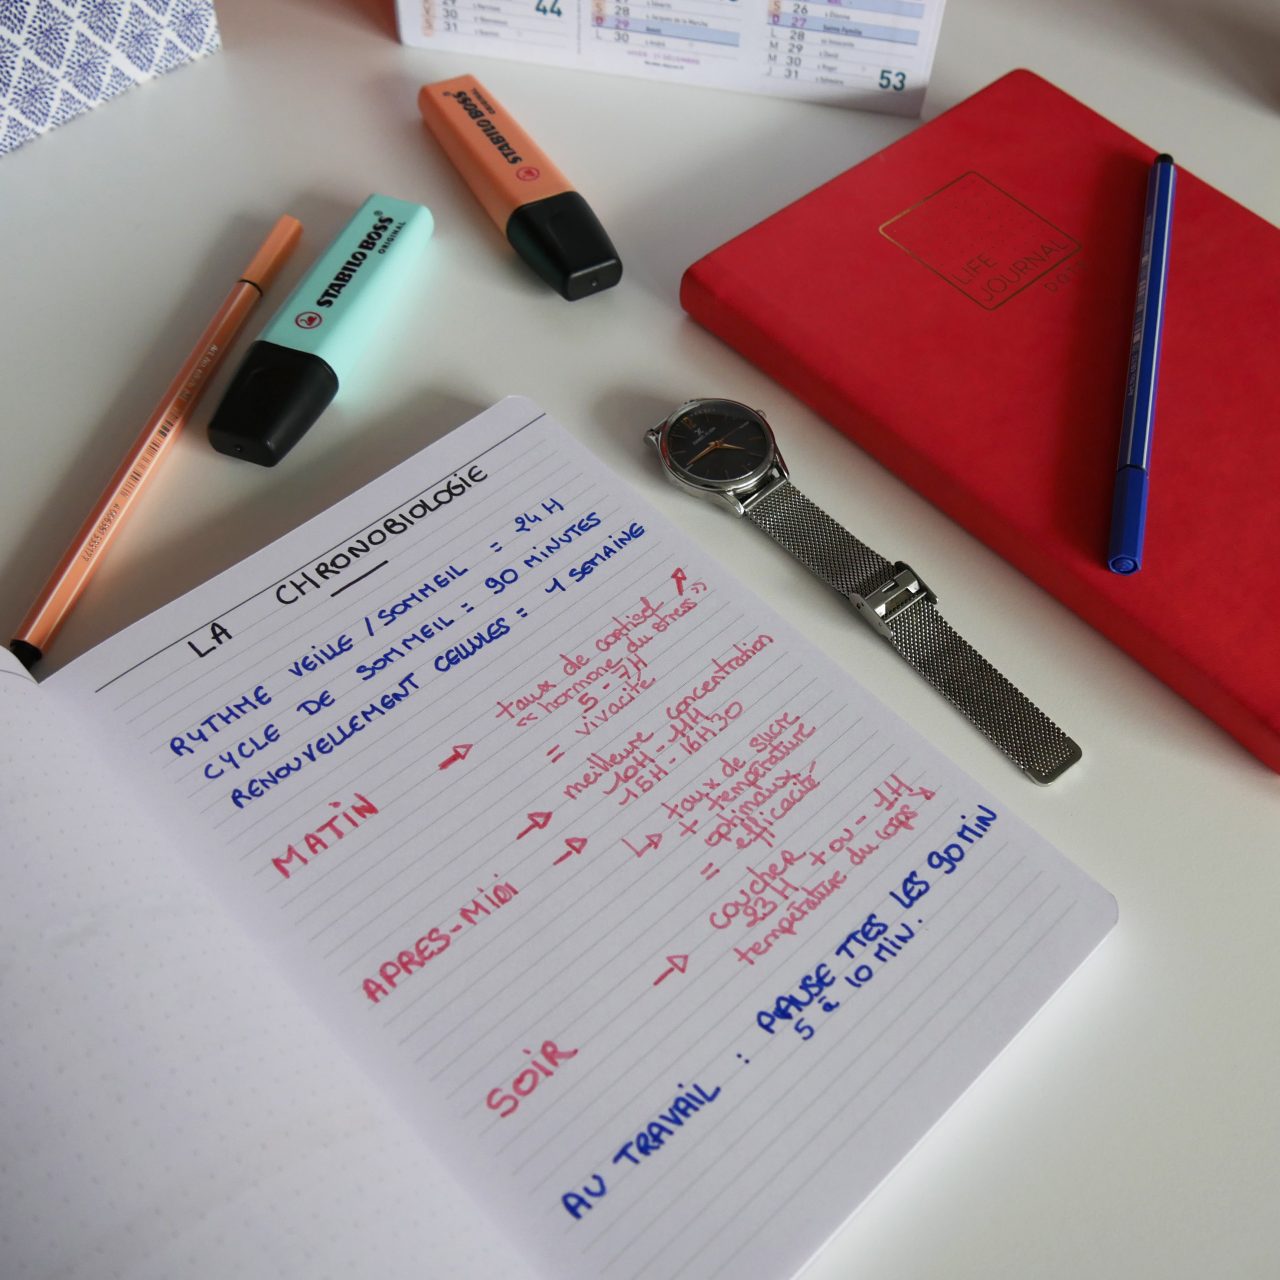 44
29
30
31
29
30
L 30
26
D 27
L 28
M 29
M 30
J 31
53
STABILO BOSS
ORIGINAL
STABILO BOSS
ORIGINAL
LIFE
JOURNAL
DOTS
LA CHRONOBIOLOGIE
RYTHME VEILLE / SOMMEIL = 24 H
CYCLE DE SOMMEIL = 90 MINUTES
RENOUVELLEMENT CELLULES = 1 SEMAINE
MATIN → taux de cortisol ↗
« hormone du stress »
5 - 7H
= vivacité
APRES-MIDI → meilleure concentration
10H - 11H
→ 15H - 16H30
↳ taux de sucre
+ température
optimaux
= efficacité
SOIR → coucher
23H + ou - 1H
température du corps ↘
AU TRAVAIL : PAUSE TTES LES 90 MIN
5 à 10 MIN.